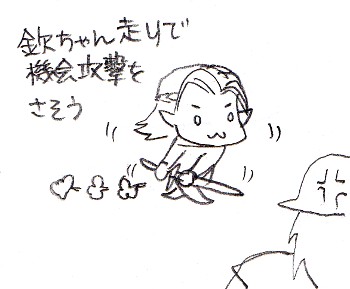 欽ちゃん走りで
機会攻撃を
さそう